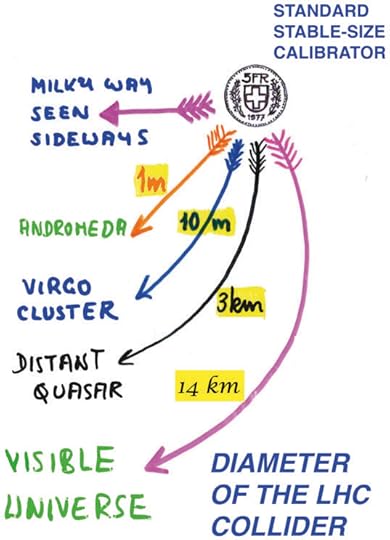 STANDARD
STABLE-SIZE
CALIBRATOR
5FR
1977
MILKY WAY
SEEN
SIDEWAYS
1m
ANDROMEDA
10 m
VIRGO
CLUSTER
3km
DISTANT
QUASAR
14 km
VISIBLE
UNIVERSE
DIAMETER
OF THE LHC
COLLIDER